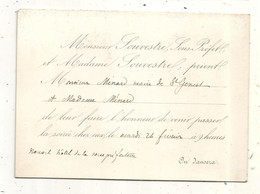 Monsieur Souvestre, Sous-Préfet
et Madame Souvestre, prient
Monsieur Ménard maire de St
et Madame Ménard
de leur faire l'honneur de venir passer
la soirée chez eux le mardi 26 février à 9 heures
hôtel de la sous préfecture
On dansera